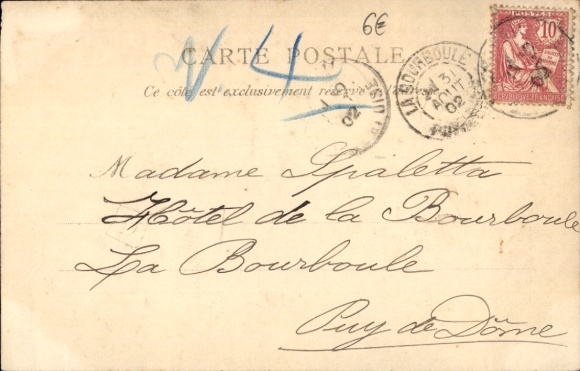 6€
POSTES
10
RÉPUBLIQUE FRANÇAISE
CARTE POSTALE
Ce côté est exclusivement réservé
4
LA BOURBOULE
3
AOUT
02
02
Madame Spaletta
Hôtel de la Bourboule
La Bourboule
Puy de Dôme